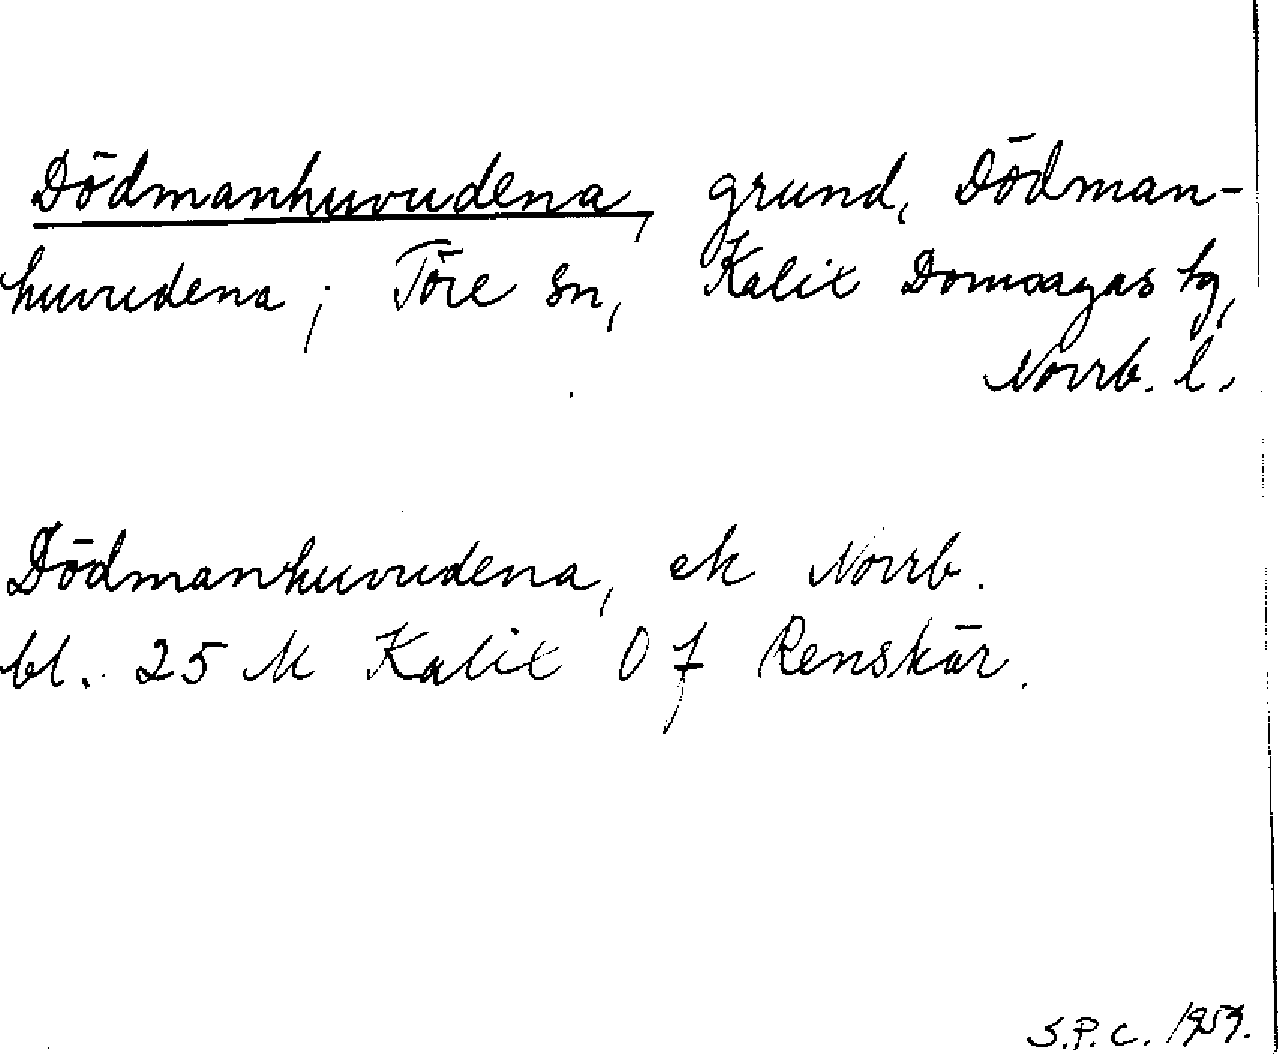 Dödmanhuvudena, grund, Dödman-
huvudena; Töre sn, Kalix Domsagas tg,
Norrb. l.
Dödmanhuvudena, ek Norrb.
bl. 25 M Kalix O f Renskär.
S.P.C.